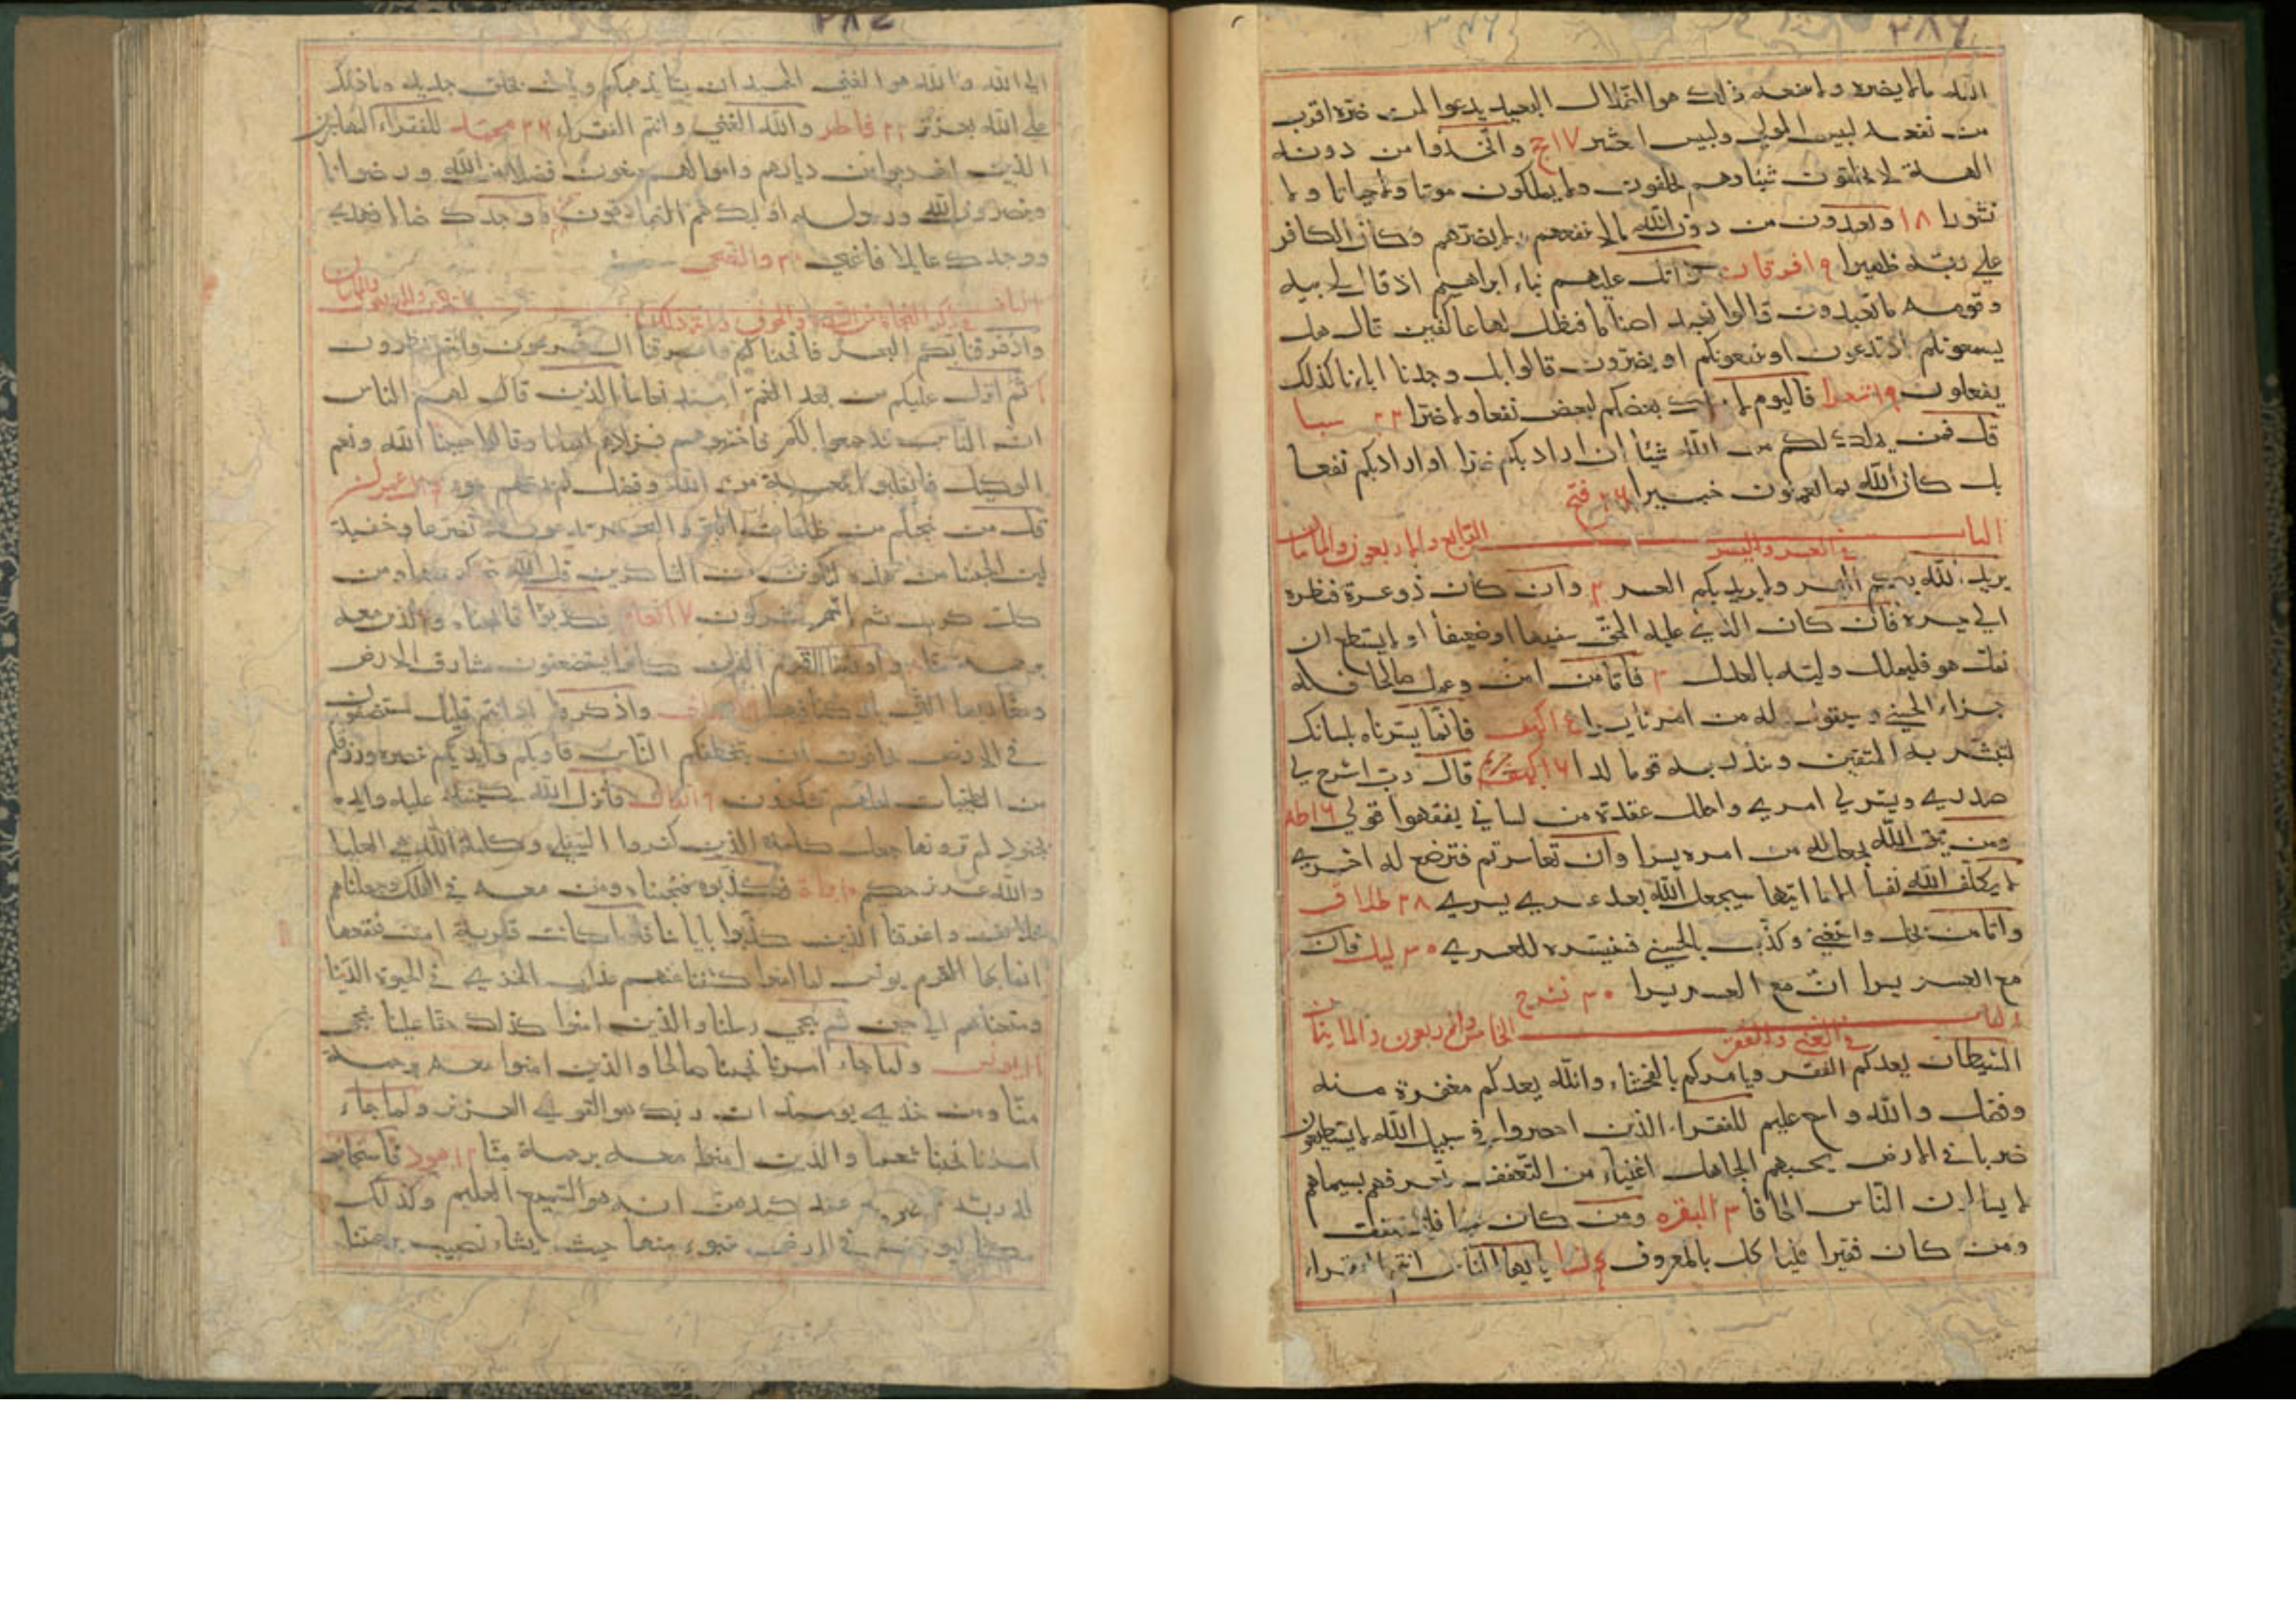 ٣٨٦
الله ما لا يضره وما لا ينفعه ذلك هو الضلال البعيد يدعوا لمن ضره اقرب
من نفعه لبيس المولى ولبيس العشير ١٧ حج واتخذوا من دونه
الهة لا يخلقون شيئا وهم يخلقون ولا يملكون موتا ولا حياتا ولا
نشورا ١٨ ويعبدون من دون الله مالا ينفعهم ولا يضرهم وكان الكافر
على ربه ظهيرا ١٩ فرقان واتل عليهم نباء ابراهيم اذ قال لابيه
وقومه ما تعبدون قالوا نعبد اصناما فنظل لها عاكفين قال هل
يسمعونكم اذ تدعون او ينفعونكم او يضرون قالوا بل وجدنا اباءنا كذلك
يفعلون ١٩ شعرا فاليوم لا يملك بعضكم لبعض نفعا ولا ضرا ٢٢ سبا
قل فمن يملك لكم من الله شيئا ان اراد بكم ضرا او اراد بكم نفعا
بل كان الله بما تعملون خبيرا ٢٦ فتح
الباب الرابع والاربعون والمايتان
في العسر واليسر
يريد الله بكم اليسر ولا يريد بكم العسر ٢ وان كان ذو عسرة فنظرة
الى ميسرة فان كان الذي عليه الحق سفيها او ضعيفا او لا يستطيع ان
يمل هو فليملل وليه بالعدل ٣ فاما من امن وعمل صالحا فله
جزاء الحسنى وسيقول له من امرنا يسرا الكهف فانما يسرناه بلسانك
لتبشر به المتقين وتنذر به قوما لدا ١٦ مريم قال رب اشرح لي
صدري ويسر لي امري واحلل عقدة من لساني يفقهوا قولي ١٦ طه
ومن يتق الله يجعل له من امره يسرا وان تعاسرتم فترضع له اخرى
لا يكلف الله نفسا الا ما اتيها سيجعل الله بعد عسر يسري ٢٨ طلاق
واما من بخل واستغنى وكذب بالحسنى فسنيسره للعسرى ٣٠ ليل فان
مع العسر يسرا ان مع العسر يسرا ٣٠ نشرح
الباب الخامس والاربعون والمايتان
في الغنى والفقر
الشيطان يعدكم الفقر ويامركم بالفحشاء والله يعدكم مغفرة منه
وفضلا والله واسع عليم للفقراء الذين احصروا في سبيل الله لا يستطيعون
ضربا في الارض يحسبهم الجاهل اغنياء من التعفف تعرفهم بسيماهم
لا يسالون الناس الحافا ٣ البقره ومن كان غنيا فليستعفف
ومن كان فقيرا فليا كل بالمعروف ٤ نسا يا ايها الناس انتم الفقراء
الى الله والله هو الغني الحميد ان يشا يذهبكم ويات بخلق جديد وما ذلك
على الله بعزيز ٢٢ فاطر والله الغني وانتم الفقراء ٢٦ محمد للفقراء المهاجرين
الذين اخرجوا من ديارهم واموالهم يبتغون فضلا من الله ورضوانا
وينصرون الله ورسوله اولئك هم الصادقون ووجدك ضالا فهدى
ووجدك عايلا فاغنى ٣٠ والضحى
واذ فرقنا بكم البحر فانجيناكم واغرقنا ال فرعون وانتم تنظرون
ثم انزل عليكم من بعد الغم امنة نعاسا الذين قال لهم الناس
ان الناس قد جمعوا لكم فاخشوهم فزادهم ايمانا وقالوا حسبنا الله ونعم
الوكيل فانقلبوا بنعمة من الله وفضل لم يمسسهم سوء ال عمران
قل من ينجيكم من ظلمات البر والبحر تدعونه تضرعا وخفية
لين انجينا من هذه لنكونن من الشاكرين قل الله ينجيكم منها ومن
كل كرب ثم انتم تشركون ٧ انعام فكذبوه فانجيناه والذين معه
برحمة منا واورثنا القوم الذين كانوا يستضعفون مشارق الارض
ومغاربها التي باركنا فيها واذكروا اذ انتم قليل مستضعفون
في الارض تخافون ان يتخطفكم الناس فاويكم وايدكم بنصره ورزقكم
من الطيبات لعلكم تشكرون ٩ انفال فانزل الله سكينته عليه وايده
بجنود لم تروها وجعل كلمة الذين كفروا السفلى وكلمة الله هي العليا
والله عزيز حكيم فكذبوه فنجيناه ومن معه في الفلك وجعلناهم
خلائف واغرقنا الذين كذبوا باياتنا فلولا كانت قرية امنت فنفعها
ايمانها الا قوم يونس لما امنوا كشفنا عنهم عذاب الخزي في الحيوة الدنيا
ومتعناهم الى حين ثم ننجي رسلنا والذين امنوا كذلك حقا علينا ننجي
يونس ولما جاء امرنا نجينا صالحا والذين امنوا معه برحمة
منا ومن خزي يومئذ ان ربك هو القوي العزيز ولما جاء
امرنا نجينا شعيبا والذين امنوا معه برحمة منا هود فاستجاب
له ربه فصرف عنه كيدهن انه هو السميع العليم وكذلك
مكنا ليوسف في الارض يتبوء منها حيث يشاء نصيب برحمتنا